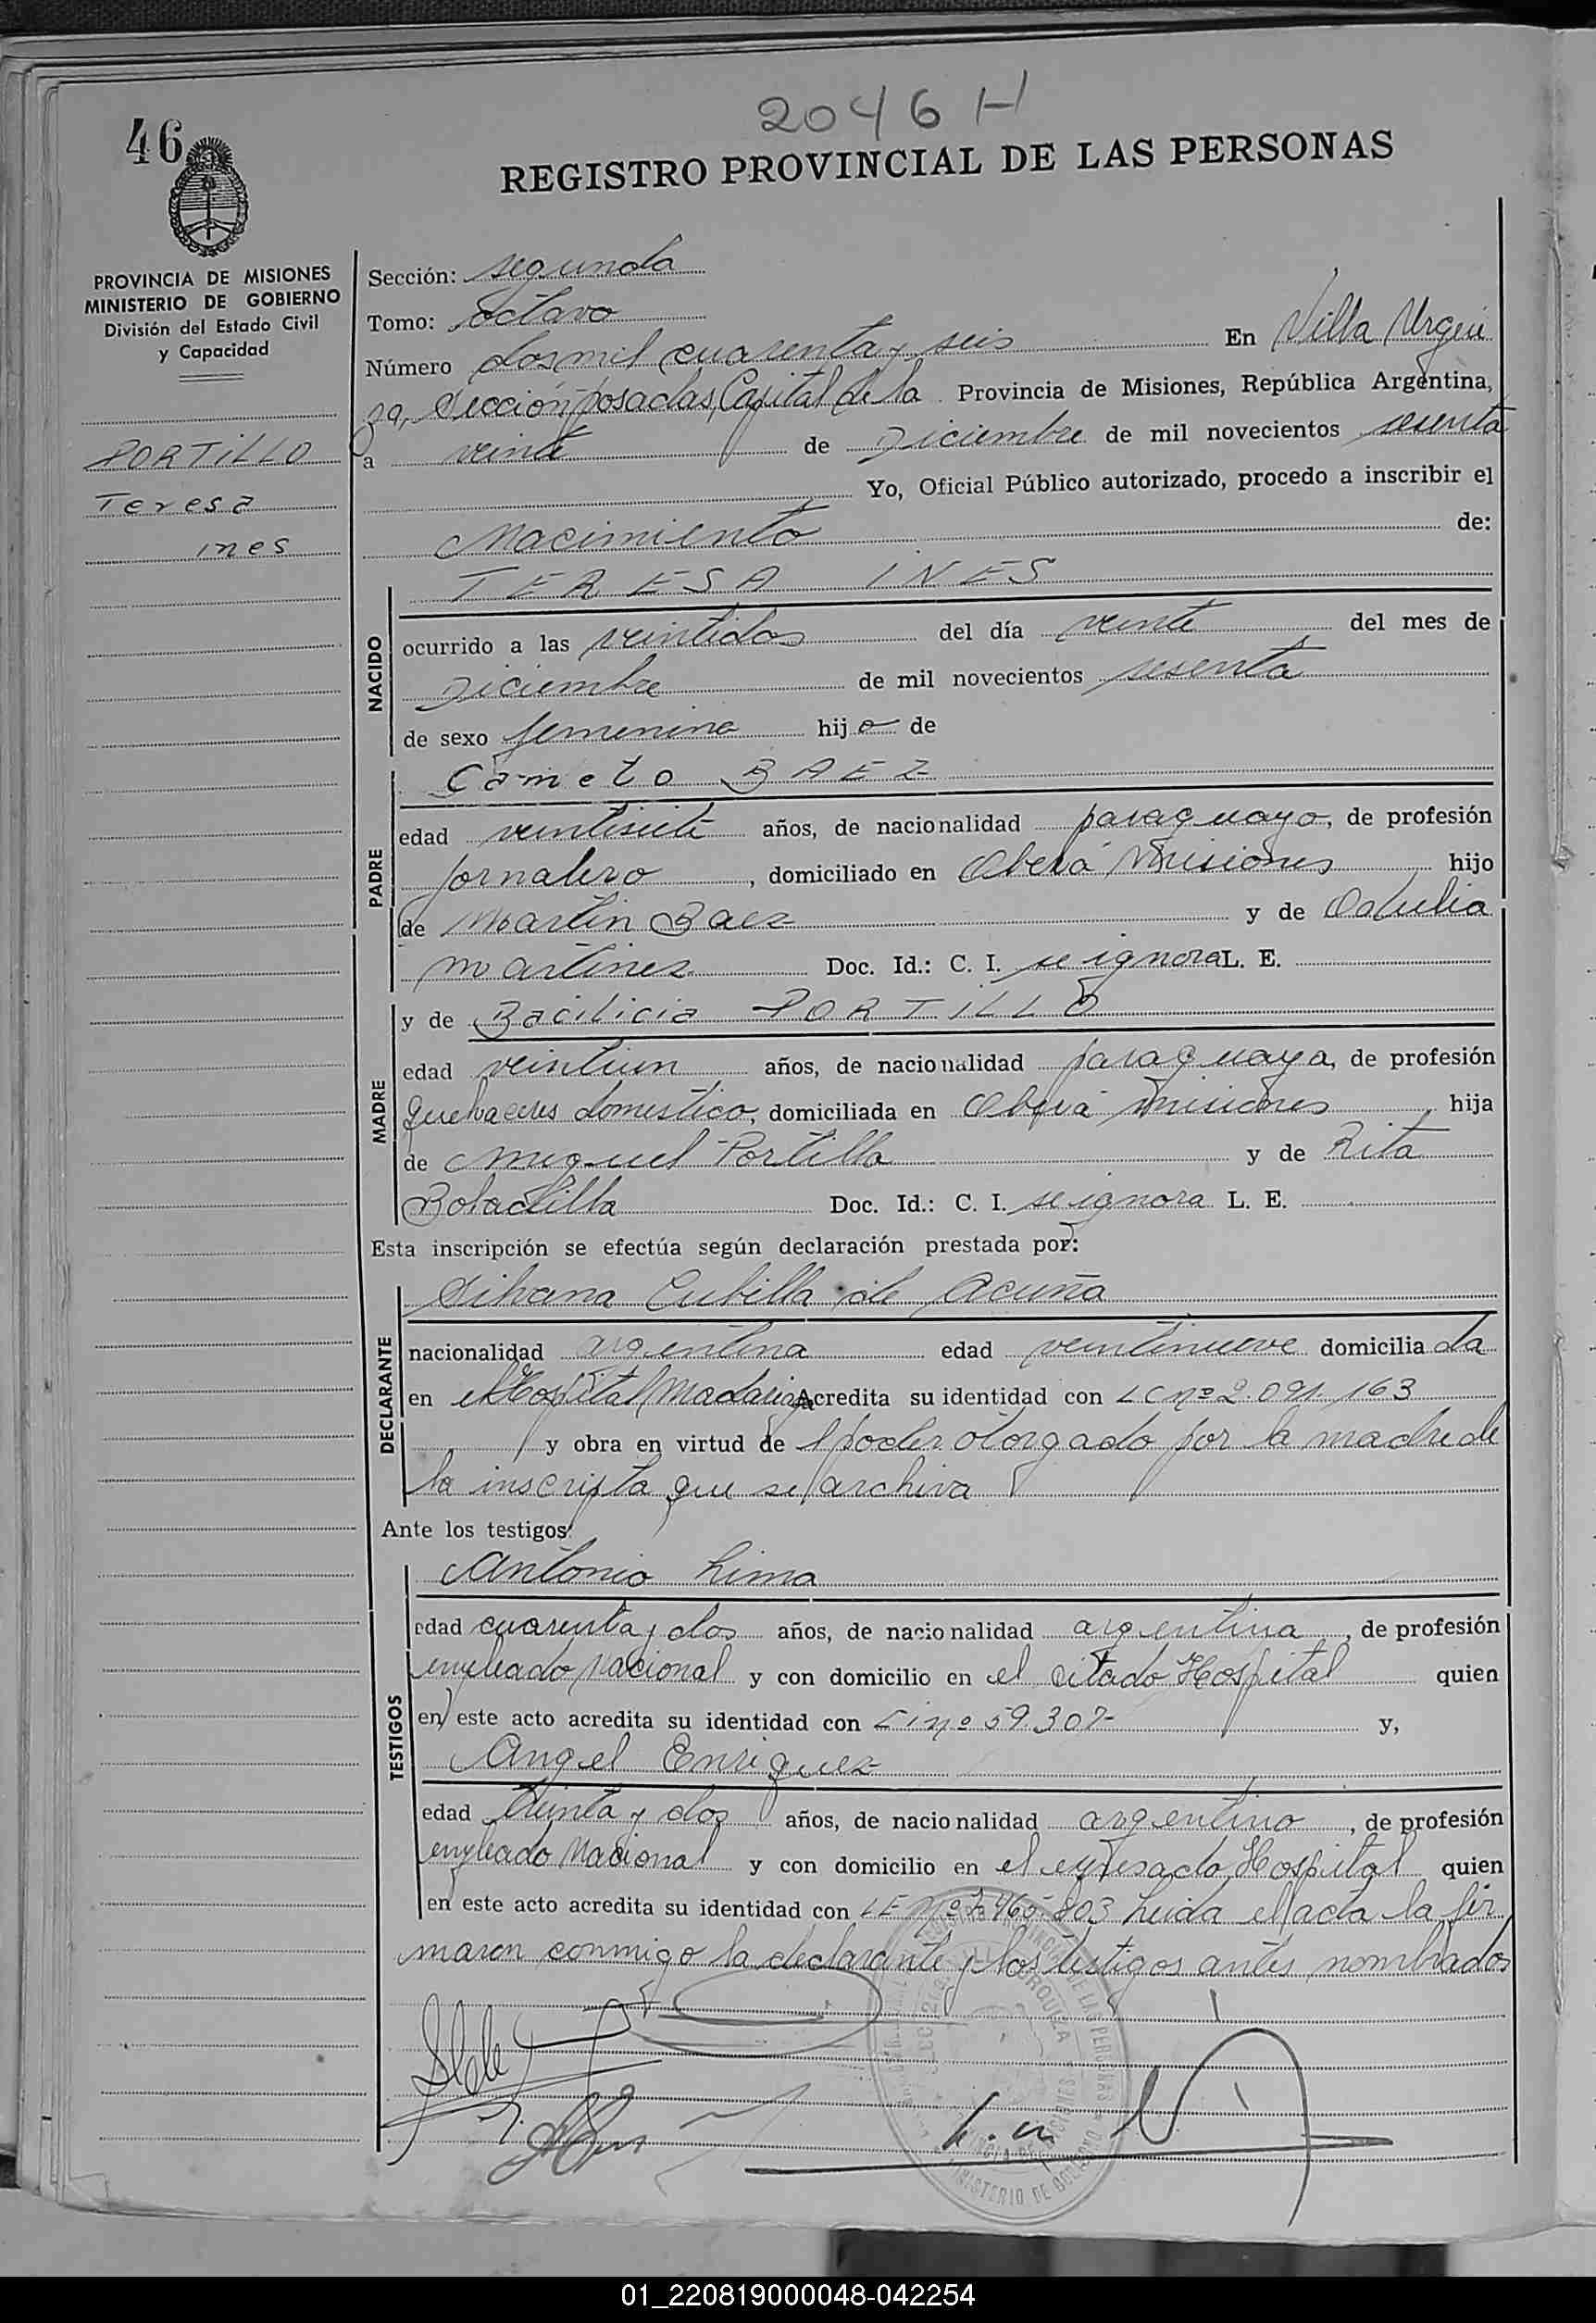 2046 H
46
REGISTRO PROVINCIAL DE LAS PERSONAS
PROVINCIA DE MISIONES
MINISTERIO DE GOBIERNO
División del Estado Civil
y Capacidad
PORTILLO
Teresa
ines
Sección: segunda
Tomo: Octavo
Número dosmil cuarenta y seis En Villa Urqui
za, Sección posadas, Capital de la Provincia de Misiones, República Argentina,
a veinte de Diciembre de mil novecientos sesenta
Yo, Oficial Público autorizado, procedo a inscribir el
Nacimiento de:
TERESA INES
NACIDO
ocurrido a las veintidos del día veinte del mes de
Diciembre de mil novecientos sesenta
de sexo femenino hija de
PADRE
BAEZ
edad veintisiete años, de nacionalidad paraguayo, de profesión
Jornalero, domiciliado en Oberá Misiones hijo
de Martin Baez y de
Martinez Doc. Id.: C. I. se ignora L. E.
MADRE
y de Bacilicia PORTILLO
edad veintiun años, de nacionalidad paraguaya, de profesión
quehaceres domestico, domiciliada en Oberá Misiones, hija
de Miguel Portillo y de Rita
Doc. Id.: C. I. se ignora L. E.
Esta inscripción se efectúa según declaración prestada por:
DECLARANTE
Cubilla de Acuña
nacionalidad argentina edad veintinueve domiciliada
en el Hospital Madariaga Acredita su identidad con LC nº 2.091.163
y obra en virtud de l poder otorgado por la madre de
la inscripta que se archiva
Ante los testigos:
TESTIGOS
Antonio Lima
edad cuarenta y dos años, de nacionalidad argentina, de profesión
empleado Nacional y con domicilio en el citado Hospital quien
en este acto acredita su identidad con nº 59.307 y,
Angel Enriquez
edad treinta y dos años, de nacionalidad argentino, de profesión
empleado Nacional y con domicilio en el expresado Hospital quien
en este acto acredita su identidad con LE Nº 7.465.803 Leida el acta la fir
maron conmigo la declarante y los testigos antes nombrados
01_220819000048-042254